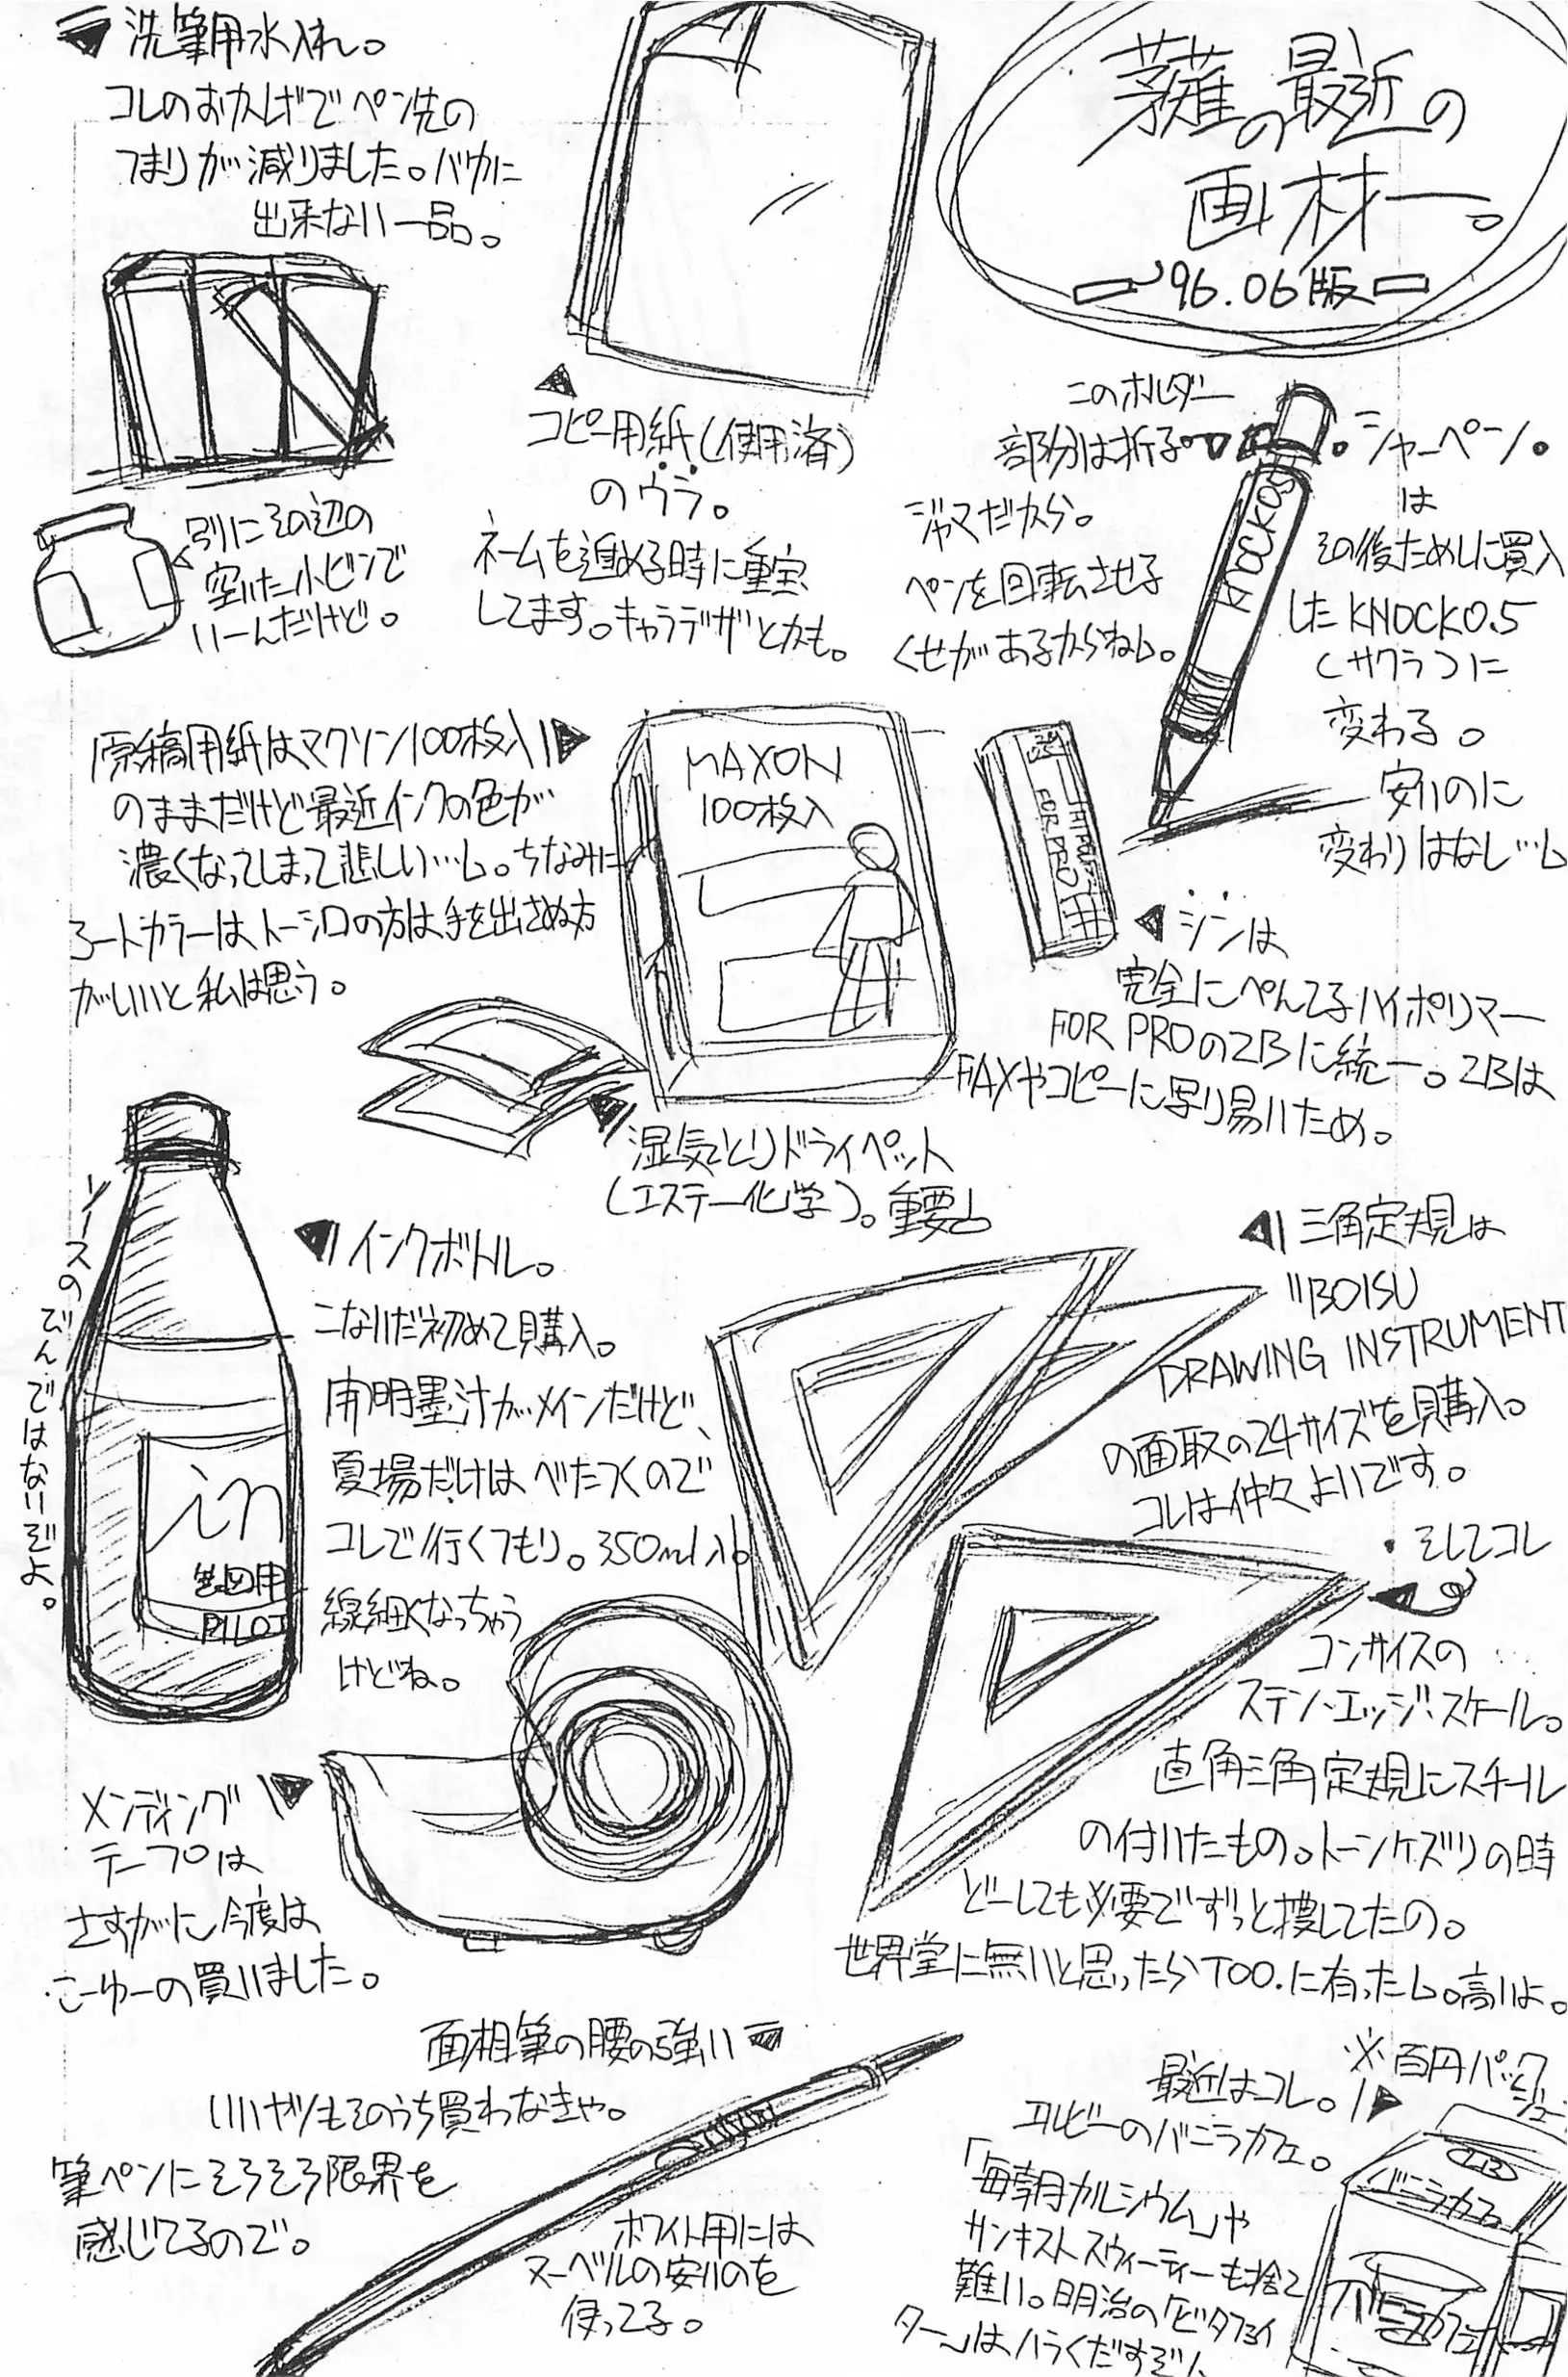 薙の最近の
画材一。
'96.06版
洗筆用水入れ。
コレのおかげでペン先の
つまりが減りました。バカに
出来ない一品。
別にその辺の
空いた小ビンで
いーんだけど。
コピー用紙(使用済)
のウラ。
ネームを進める時に重宝
してます。キャラデザとかも。
このホルダー
部分は折る。
ジャマだから。
ペンを回転させる
くせがあるからねぃ。
KNOCK0.5
シャーペン。
は
その後ためしに買入
したKNOCK0.5
(サクラ)に
変わる。
安いのに
変わりはなし…
原稿用紙はマクソン100枚入り
のままだけど最近インクの色が
濃くなってしまって悲しい…。ちなみに
ートカラーは、トーシロの方は手を出さぬ方
がいいと私は思う。
MAXON
100枚入
FOR PRO
シンは
完全にぺんてるハイポリマー
FOR PROの2Bに統一。2Bは
FAXやコピーに写り易いため。
湿気とりドライペット
(エステー化学)。重要
ソースのびんではないぞよ。
in
製図用
PILOT
インクボトル。
こないだ初めて購入。
開明墨汁がメインだけど、
夏場だけはべたつくので
コレで行くつもり。350ml入。
線細くなっちゃう
けどね。
三角定規は
"BOISU
DRAWING INSTRUMENT
の面取の24サイズを購入。
コレは仲々よいです。
・そしてコレ
コンサイスの
ステン・エッジ・スケール。
直角三角定規にスチール
の付いたもの。トーンケズリの時
どーしても必要でずっと捜してたの。
世界堂に無いと思ったらTOO.に有った。高いよ。
メンディング
テープは
さすがに今度は
こーゆーの買いました。
面相筆の腰の強い
いいヤツもそのうち買わなきゃ。
筆ペンにそろそろ限界を
感じてるので。
ホワイト用には
ヌーベルの安いのを
使ってる。
※百円パック
ジュー
最近はコレ。
エルビーのバニラカフェ。
「毎朝カルシウム」や
サンキストスウィーティーも捨て
難い。明治の「ビタファイ
ター」はハラくだすぞ
LB
バニラカフェ
バニラカフェ